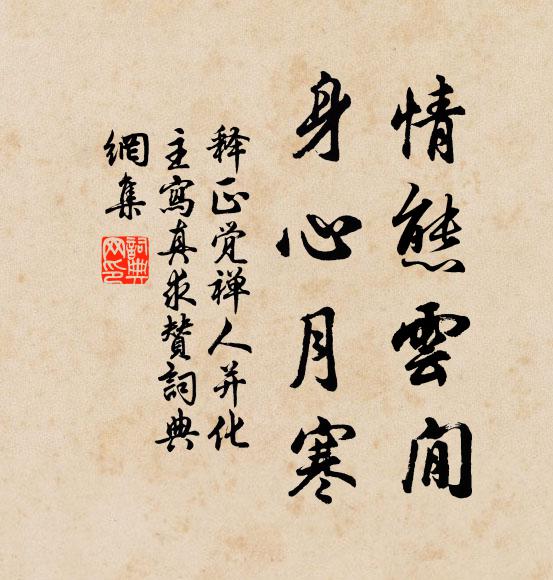 情態雲閒
身心月寒
释正觉禅人并化
主寫真求赞詞典
網集
詞典
网印